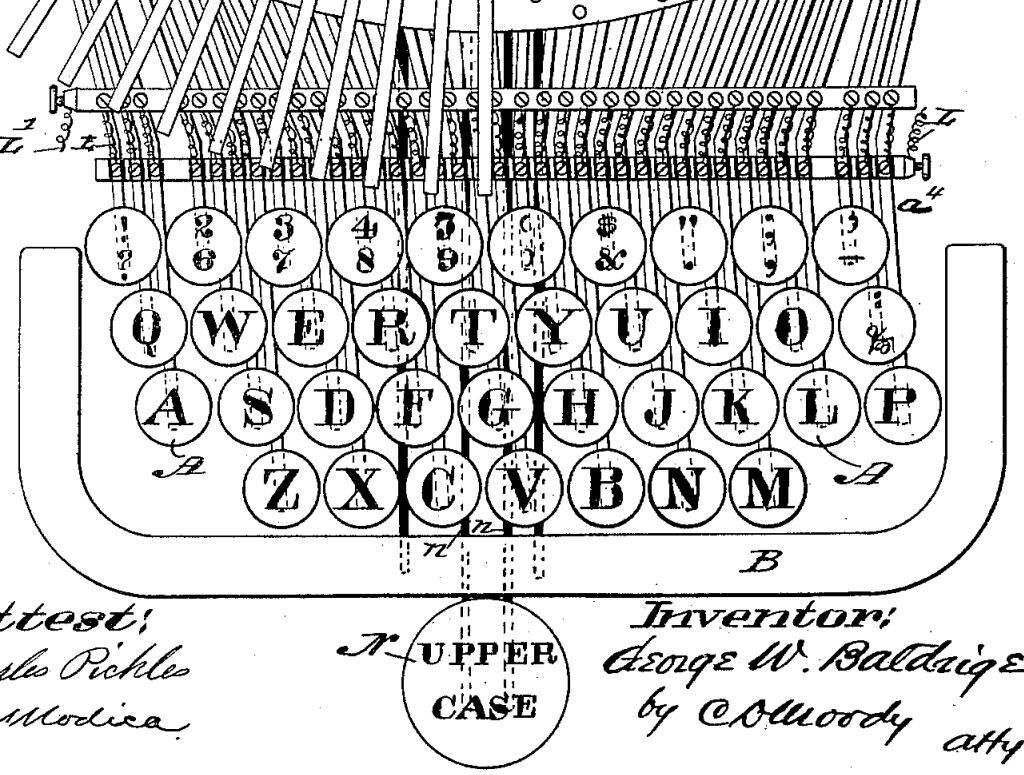 L¹ t L
a⁴
! 2 3 4 5 $ " ; ,
? 6 7 8 9 & . ,
Q W E R T Y U I O
A S D F G H J K L P
A A
Z X C V B N M
n n
B
ttest: Inventor:
N UPPER George W. Baldrige
Pickles
CASE by C D Moody
Modica
atty